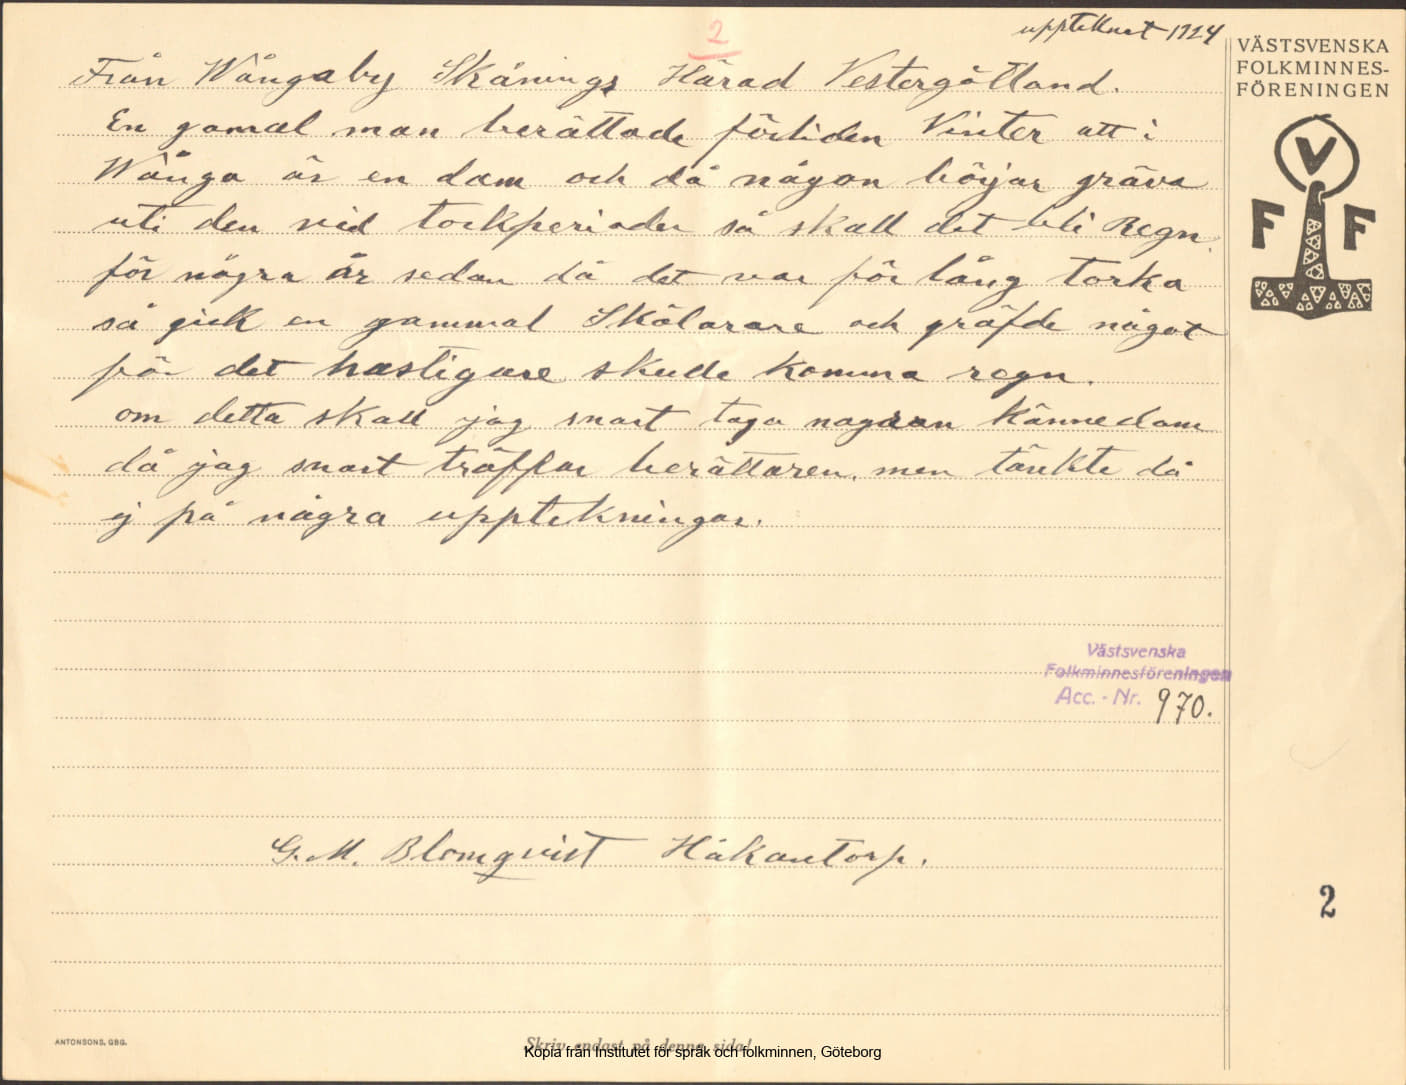 2
upptecknat 1924
Från Wångaby Skånings Härad Vestergötland.
En gamal man berättade förliden Vinter att i
Wånga är en dam och då någon börjar gräva
uti den vid torkperioder så skall det bli Regn.
för några år sedan då det var för lång torka
så gick en gammal Skolarare och gräfde något
för det hastigare skulle komma regn.
om detta skall jag snart taga nagran kännedom
då jag snart träffar berättaren, men tänkte då
ej på några uppteckningar.
G. M. Blomqvist Håkantorp.
VÄSTSVENSKA
FOLKMINNES-
FÖRENINGEN
V
F F
Västsvenska
Folkminnesföreningen
Acc. - Nr. 970.
2
ANTONSONS, GBG.
Skriv endast på denna sida!
Kopia från Institutet för språk och folkminnen, Göteborg